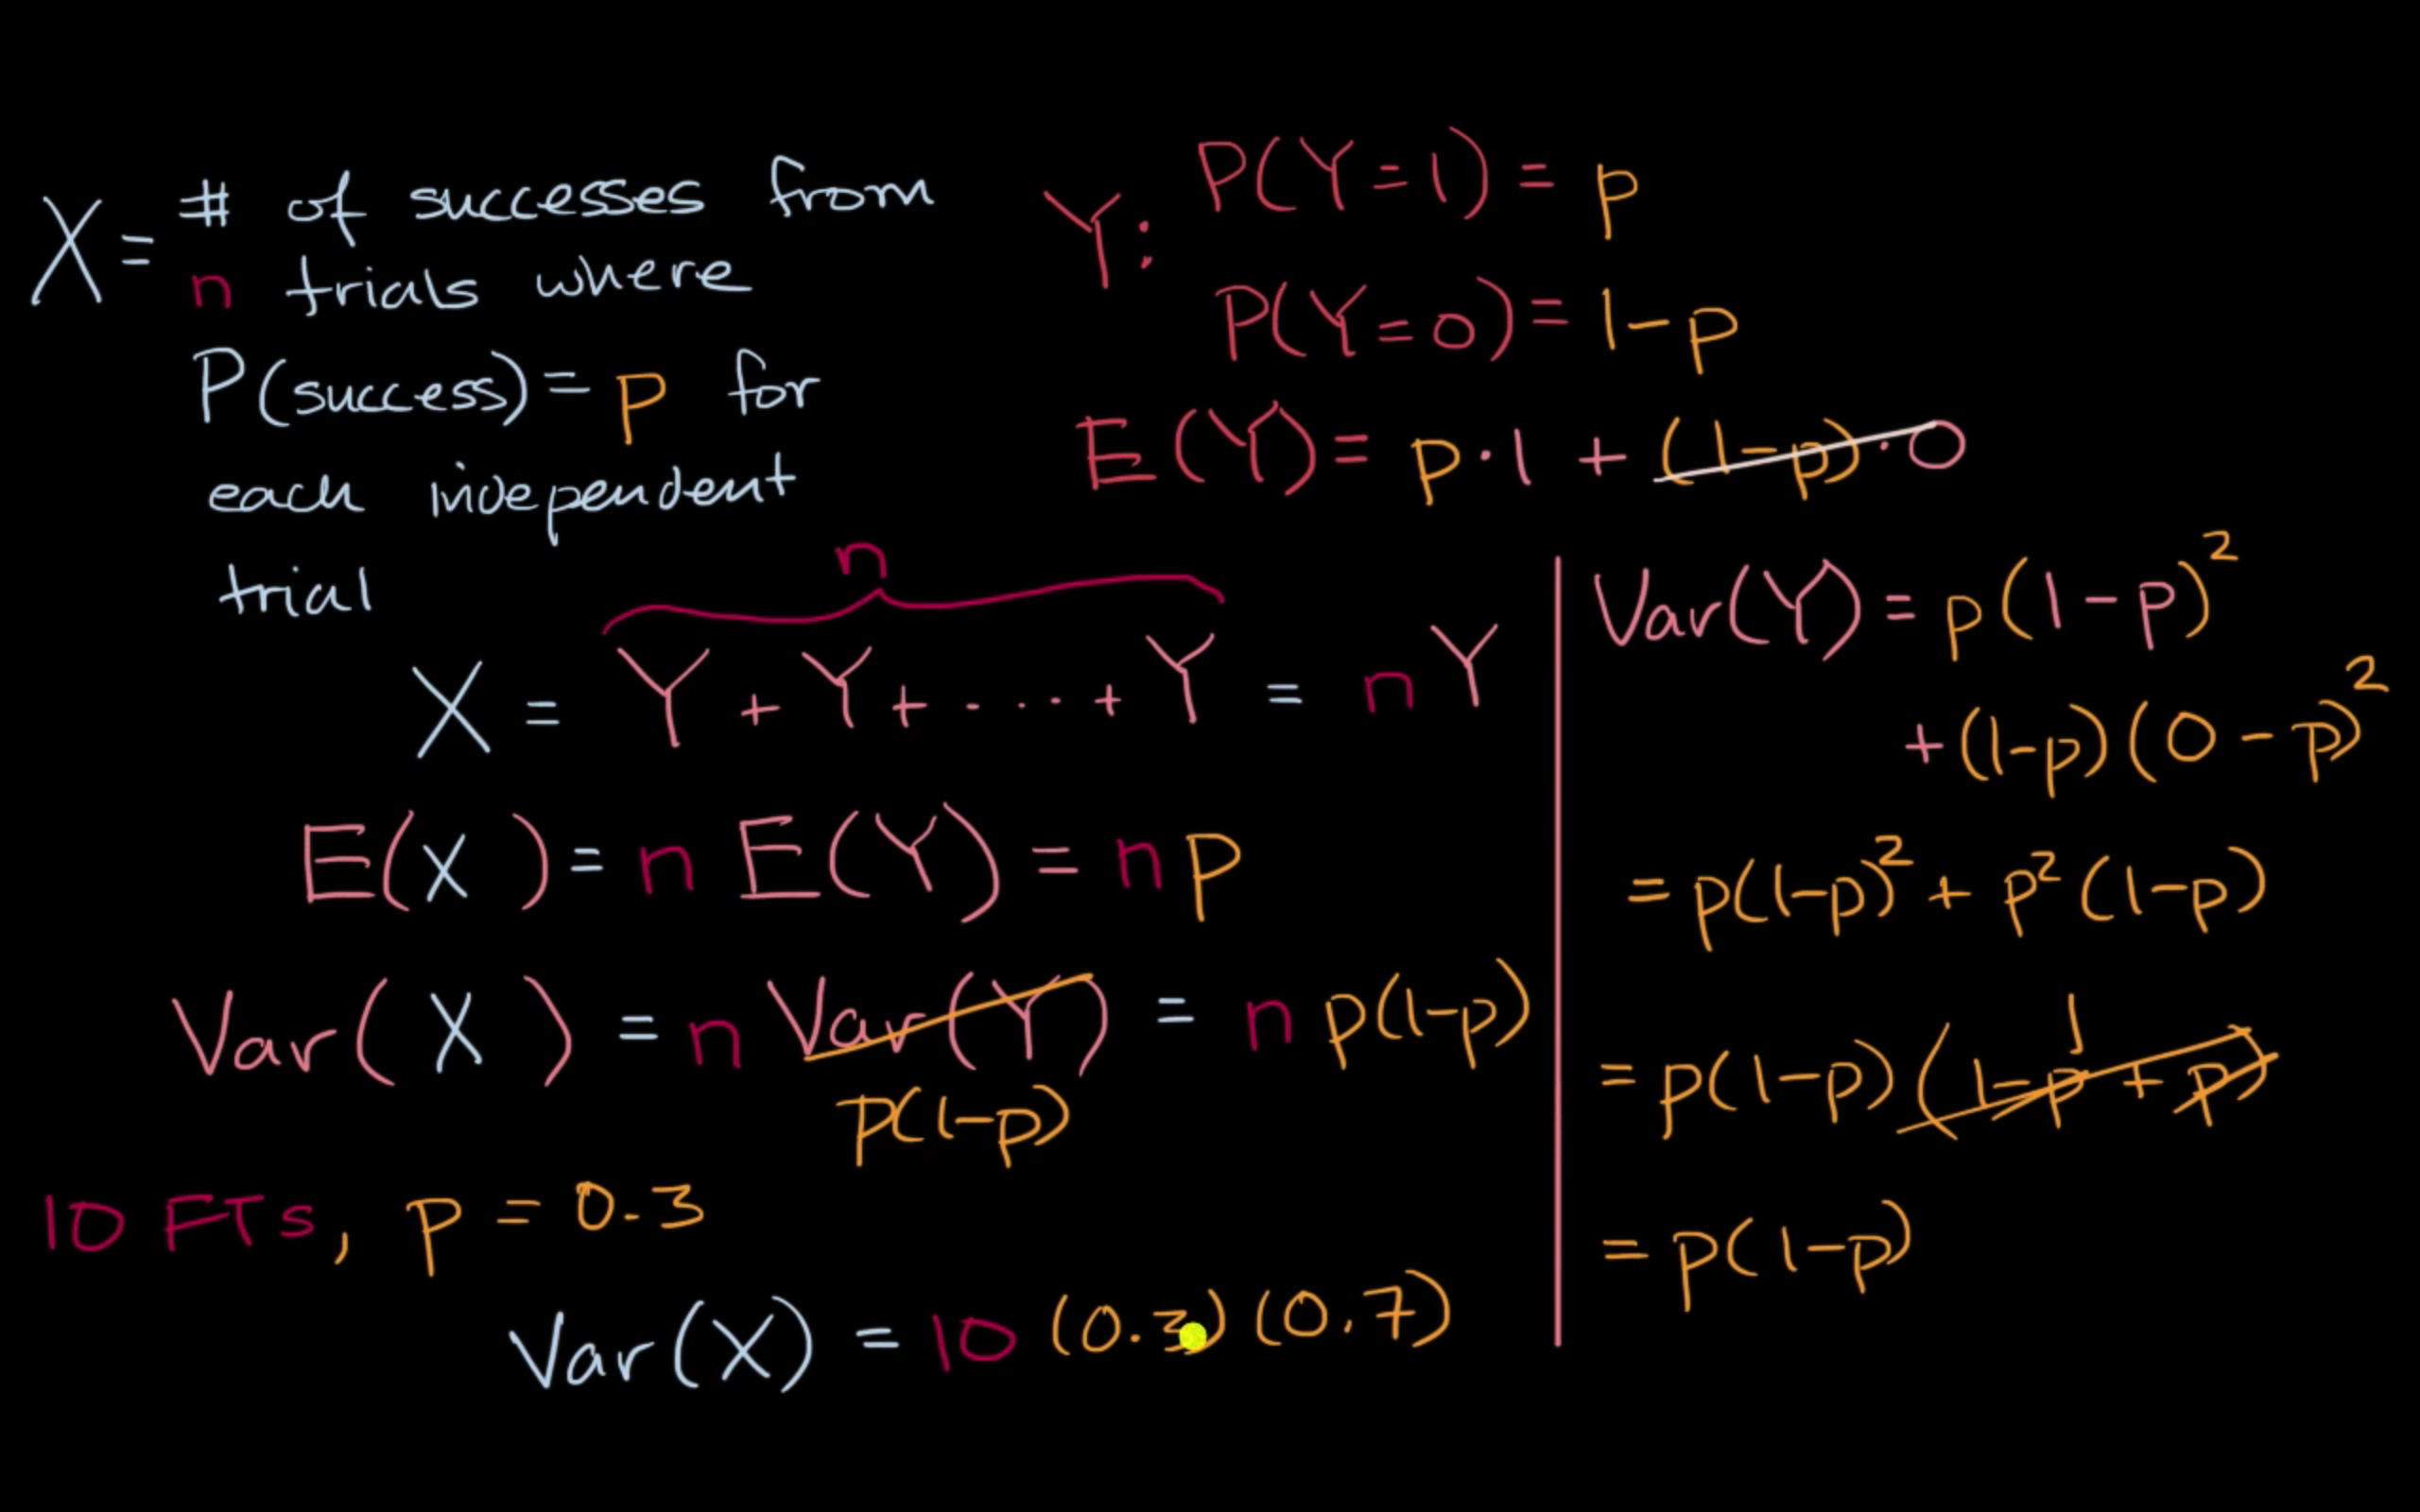 X = # of successes from
n trials where
P(success) = p for
each independent
trial
Y: P(Y=1) = p
P(Y=0) = 1-p
E(Y) = p·1 + (1-p)·0
n
X = Y + Y + ···· + Y = nY
E(X) = n E(Y) = np
Var(X) = n Var(Y) = n p(1-p)
p(1-p)
10 FTs, p = 0.3
Var(X) = 10 (0.3)(0.7)
Var(Y) = p(1-p)²
+ (1-p)(0-p)²
= p(1-p)² + p²(1-p)
1
= p(1-p)(1-p+p)
= p(1-p)